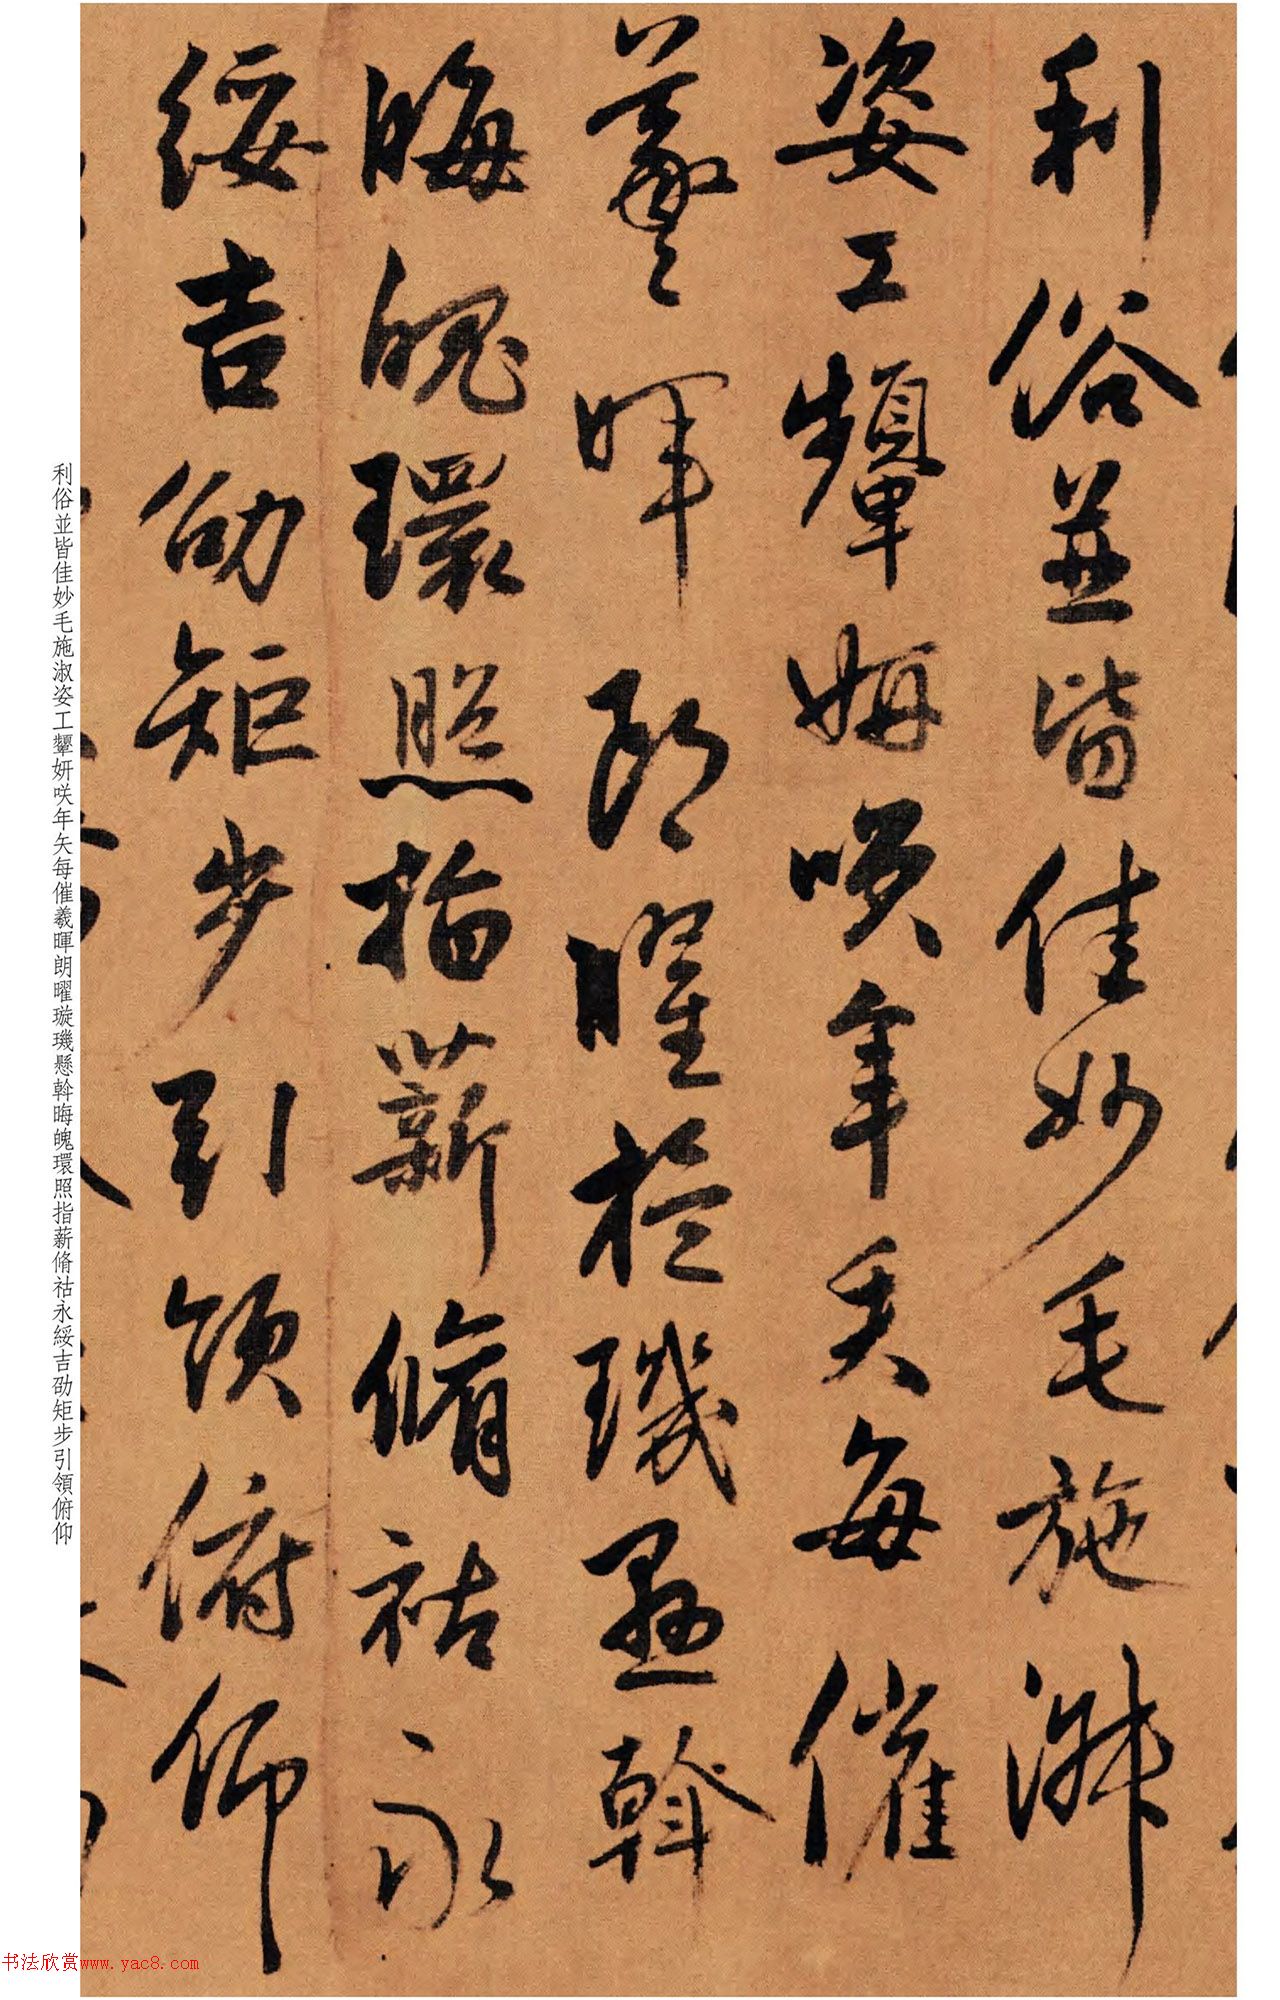 利俗並皆佳妙毛施淑
姿工顰妍唉年矢每催
羲暉朗曜璇璣懸斡
晦魄環照指薪脩祜永
綏吉劭矩步引領俯仰
利俗並皆佳妙毛施淑姿工顰妍咲年矢每催羲暉朗曜璇璣懸斡晦魄環照指薪脩祜永綏吉劭矩步引領俯仰
书法欣赏www.yac8.com